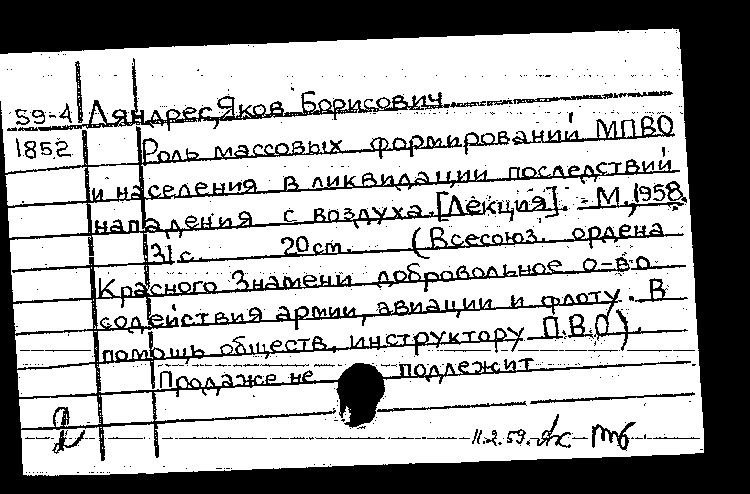 59-4 Ляндрес, Яков Борисович
1852 Роль массовых формирований МПВО
и населения в ликвидации последствий
нападения с воздуха. [Лекция]. М., 1958.
31 с. 20 cm. (Всесоюз. ордена
Красного Знамени добровольное о-во
содействия армии, авиации и флоту. В
помощь обществ. инструктору П.В.О).
Продаже не подлежит
11.2.59.